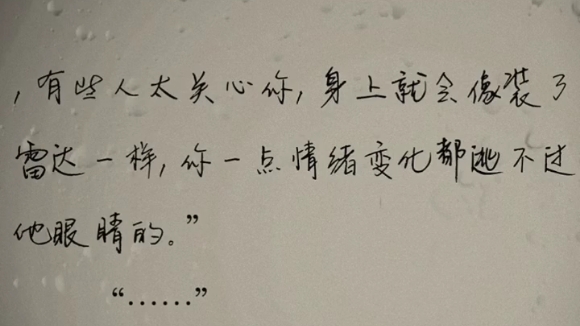 ，有些人太关心你，身上就会像装了
雷达一样，你一点情绪变化都逃不过
他眼睛的。”
“……”